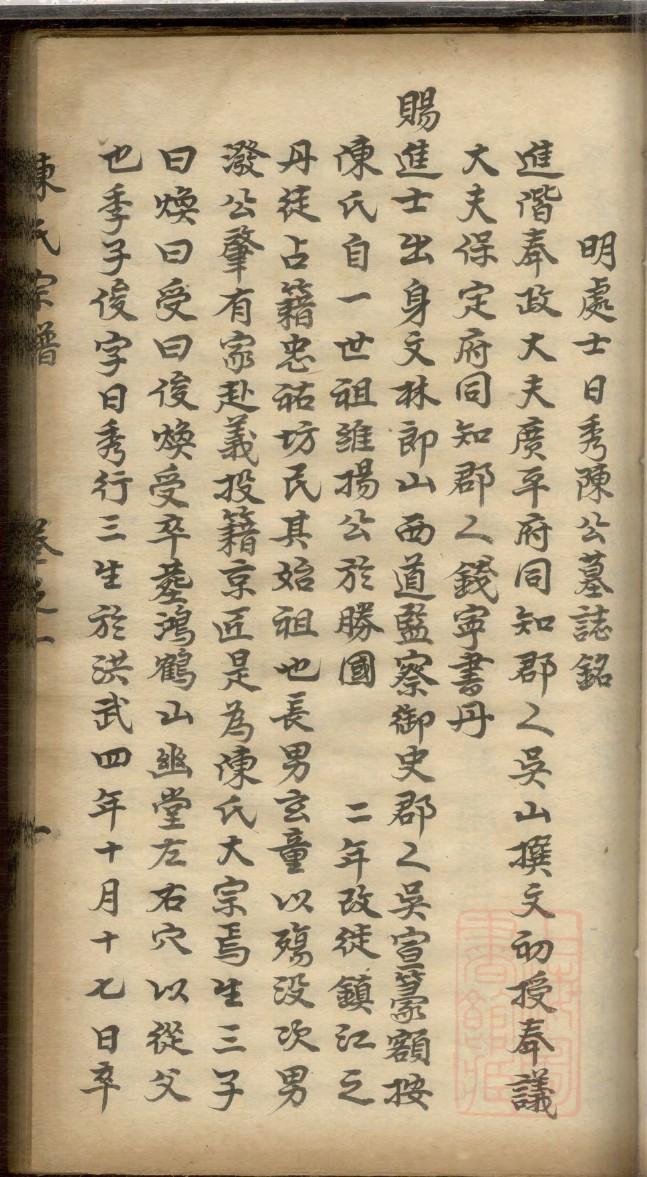 明處士日秀陳公墓誌銘
進階奉政大夫廣平府同知郡人吳山撰文初授奉議
大夫保定府同知郡人錢寧書丹
賜進士出身文林郎山西道監察御史郡人吳宣篆額按
陳氏自一世祖維揚公於勝國 二年改徙鎮江之
丹徒占籍忠祐坊民其始祖也長男玄童以殤沒次男
潑公肇有家赴義投籍京匠是為陳氏大宗焉生三子
曰煥曰受曰俊煥受卒墓鴻鶴山幽堂左右穴以從父
也季子俊字日秀行三生於洪武四年十月十七日卒
陳氏宗譜 卷之一 一